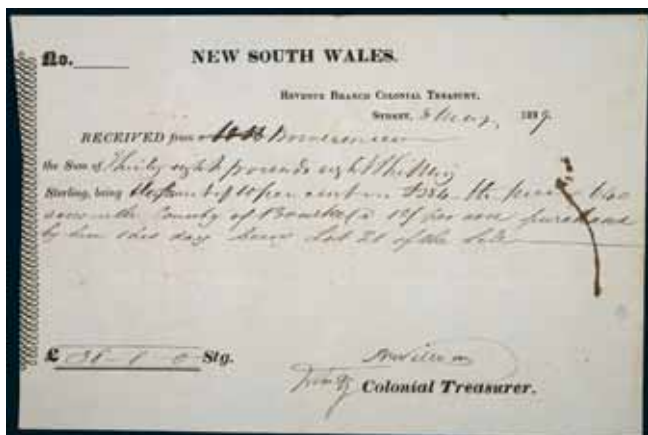 No.
NEW SOUTH WALES.
REVENUE BRANCH COLONIAL TREASURY,
SYDNEY, 8 May, 1839.
RECEIVED from
the Sum of Thirty eight pounds eight Shillings
Sterling, being deposit of 10 per cent on £384 the price
in the County of Bourke @ 12/ per acre purchased
by him this day being Lot 20 of the Sale
£ 38-8-0 Stg.
Colonial Treasurer.